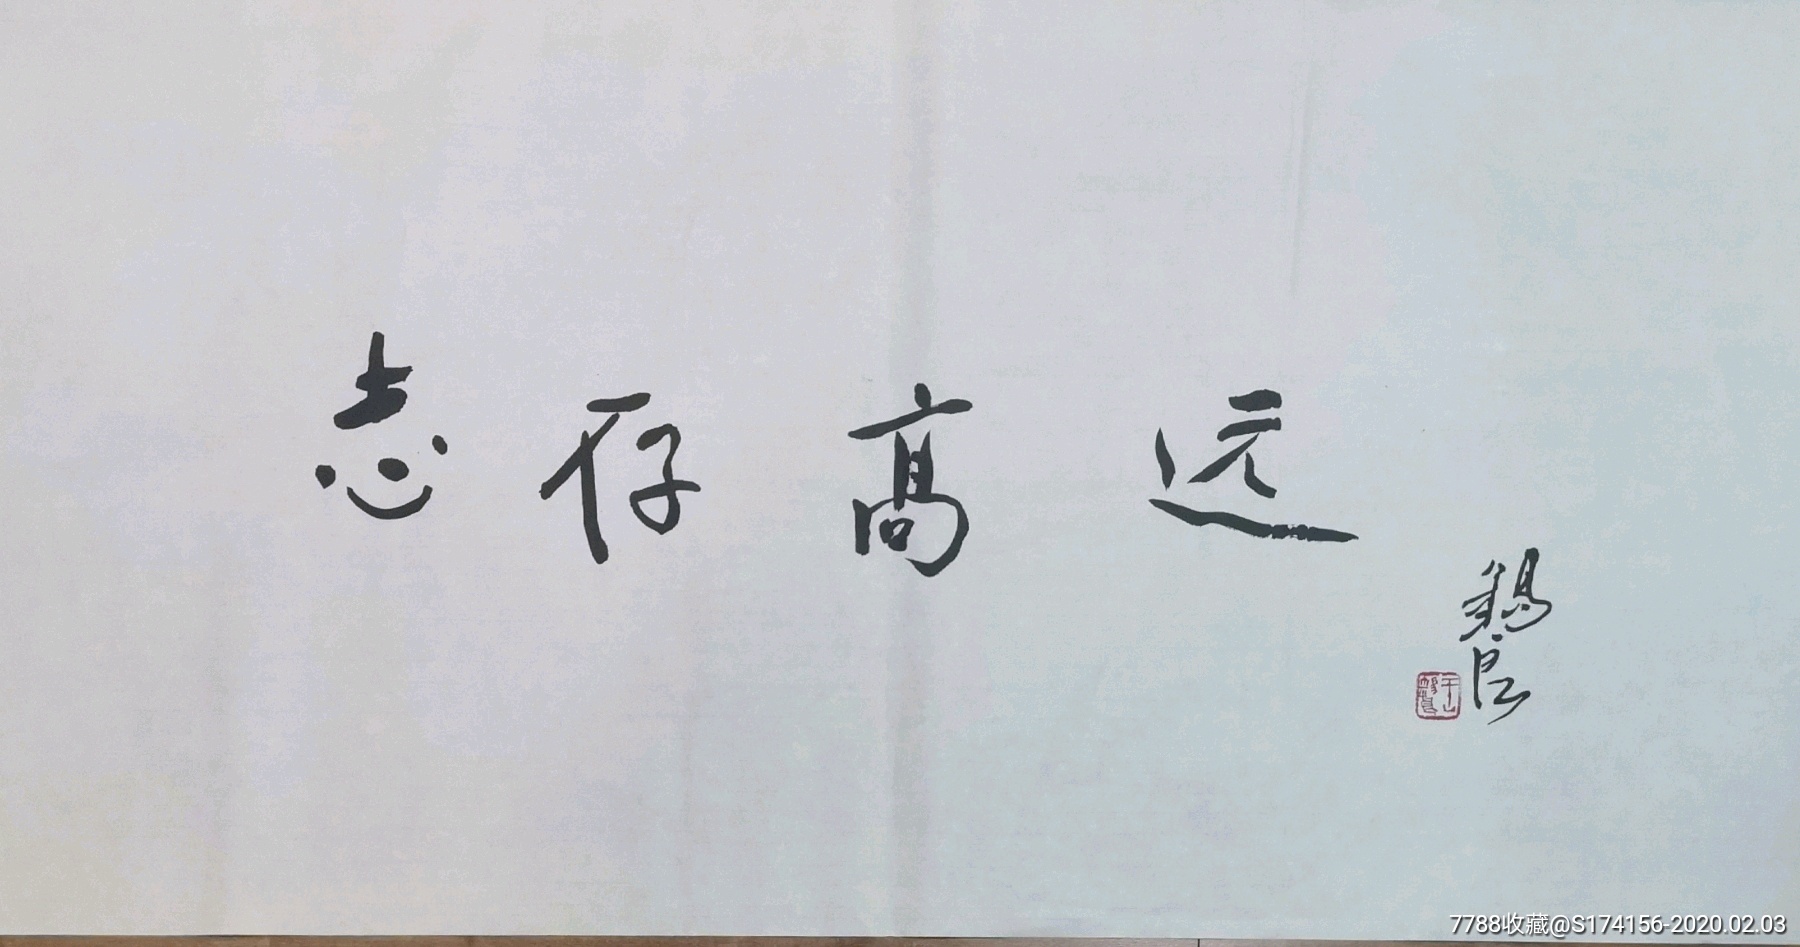 志存高远
锡良
7788收藏@S174156-2020.02.03